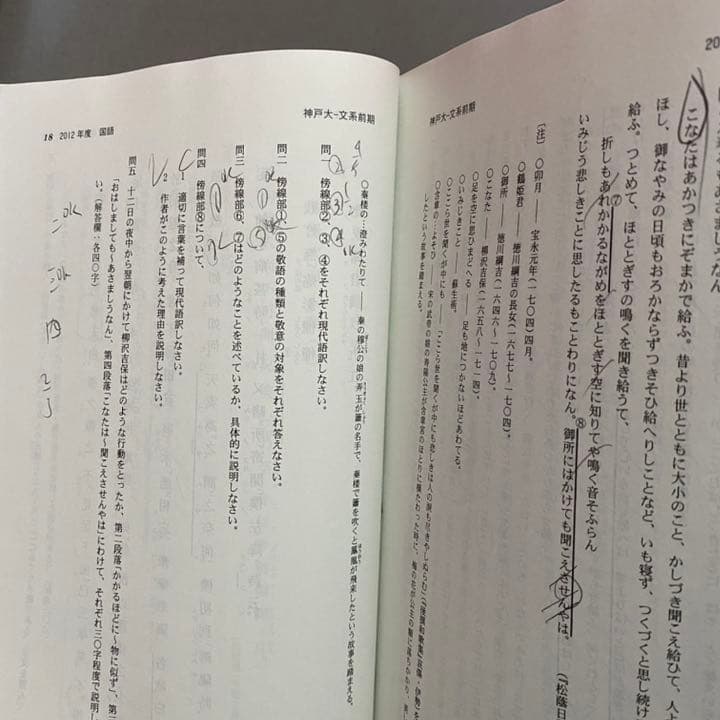 神戸大-文系前期
こなたはあかつきにぞまかで給ふ。昔より世とともに大小のこと、かしづき聞こえ給ひて、人
ほし、御なやみの日頃もおろかならずつきそひ給へりしことなど、いも寝ず、つくづくと思し続け
給ふ。つとめて、ほととぎすの鳴くを聞き給うて、
折しもあれかかるながめをほととぎす空に知りてや鳴く音そふらん
⑦
いみじう悲しきことに思したるもことわりになん。御所にはかけても聞こえさせんやは。
⑧
(『松蔭日
〔注〕 ○卯月―宝永元年(一七〇四)四月。
○鶴姫君―徳川綱吉の長女(一六七七~一七〇四)。
○御所―徳川綱吉(一六四六~一七〇九)。
○こなた―柳沢吉保(一六五八~一七一四)。
○足を空に思ひまどへる―足も地につかないほどあわてる。
○いみじきこと―蘇生術。
○ここら世を聞くが中にも―「ここら世を聞くが中にも悲しきは人の涙も尽きやしぬらむ」(『後撰和歌集』哀傷・伊勢)を
○含章の:よそひ―宋の武帝の娘の寿陽公主が含章宮のほとりに横たわった時に、梅の花が公主の額に落ちかかり、
したという故事を踏まえる。
神戸大-文系前期
○秦楼の…澄みわたりて―秦の穆公の娘の弄玉が簫の名手で、秦楼で簫を吹くと鳳凰が飛来したという故事を踏まえる。
問一 傍線部②、③、④をそれぞれ現代語訳しなさい。
問二 傍線部①、⑤の敬語の種類と敬意の対象をそれぞれ答えなさい。
問三 傍線部⑥、⑦はどのようなことを述べているか、具体的に説明しなさい。
問四 傍線部⑧について、
1 適切に言葉を補って現代語訳しなさい。
2 作者がこのように考えた理由を説明しなさい。
問五 十二日の夜中から翌朝にかけて柳沢吉保はどのような行動をとったか、第二段落「かかるほどに~物に似ず」、第三
「おはしましても~あさましうなん」、第四段落「こなたは~聞こえさせんやは」にわけて、それぞれ三〇字程度で説明
い。(解答欄:各四〇字)
18 2012年度 国語